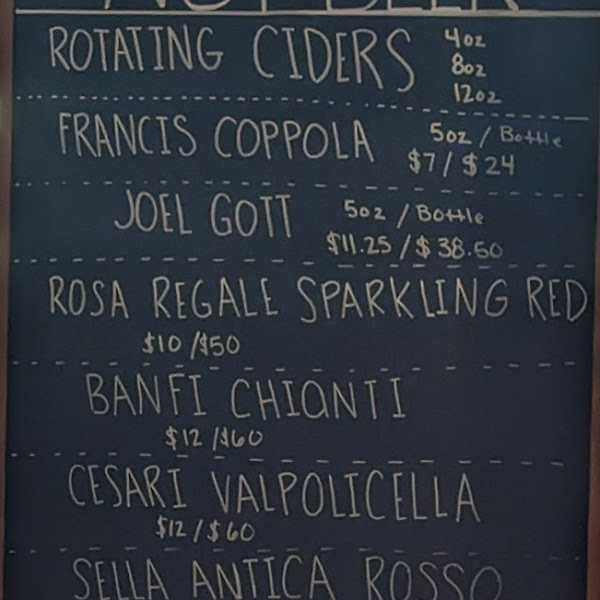 NOT BEER
ROTATING CIDERS
4oz
8oz
12oz
FRANCIS COPPOLA
5oz / Bottle
$7 / $24
JOEL GOTT
5oz / Bottle
$11.25 / $38.50
ROSA REGALE SPARKLING RED
$10 / $50
BANFI CHIANTI
$12 / $60
CESARI VALPOLICELLA
$12 / $60
SELLA ANTICA ROSSO